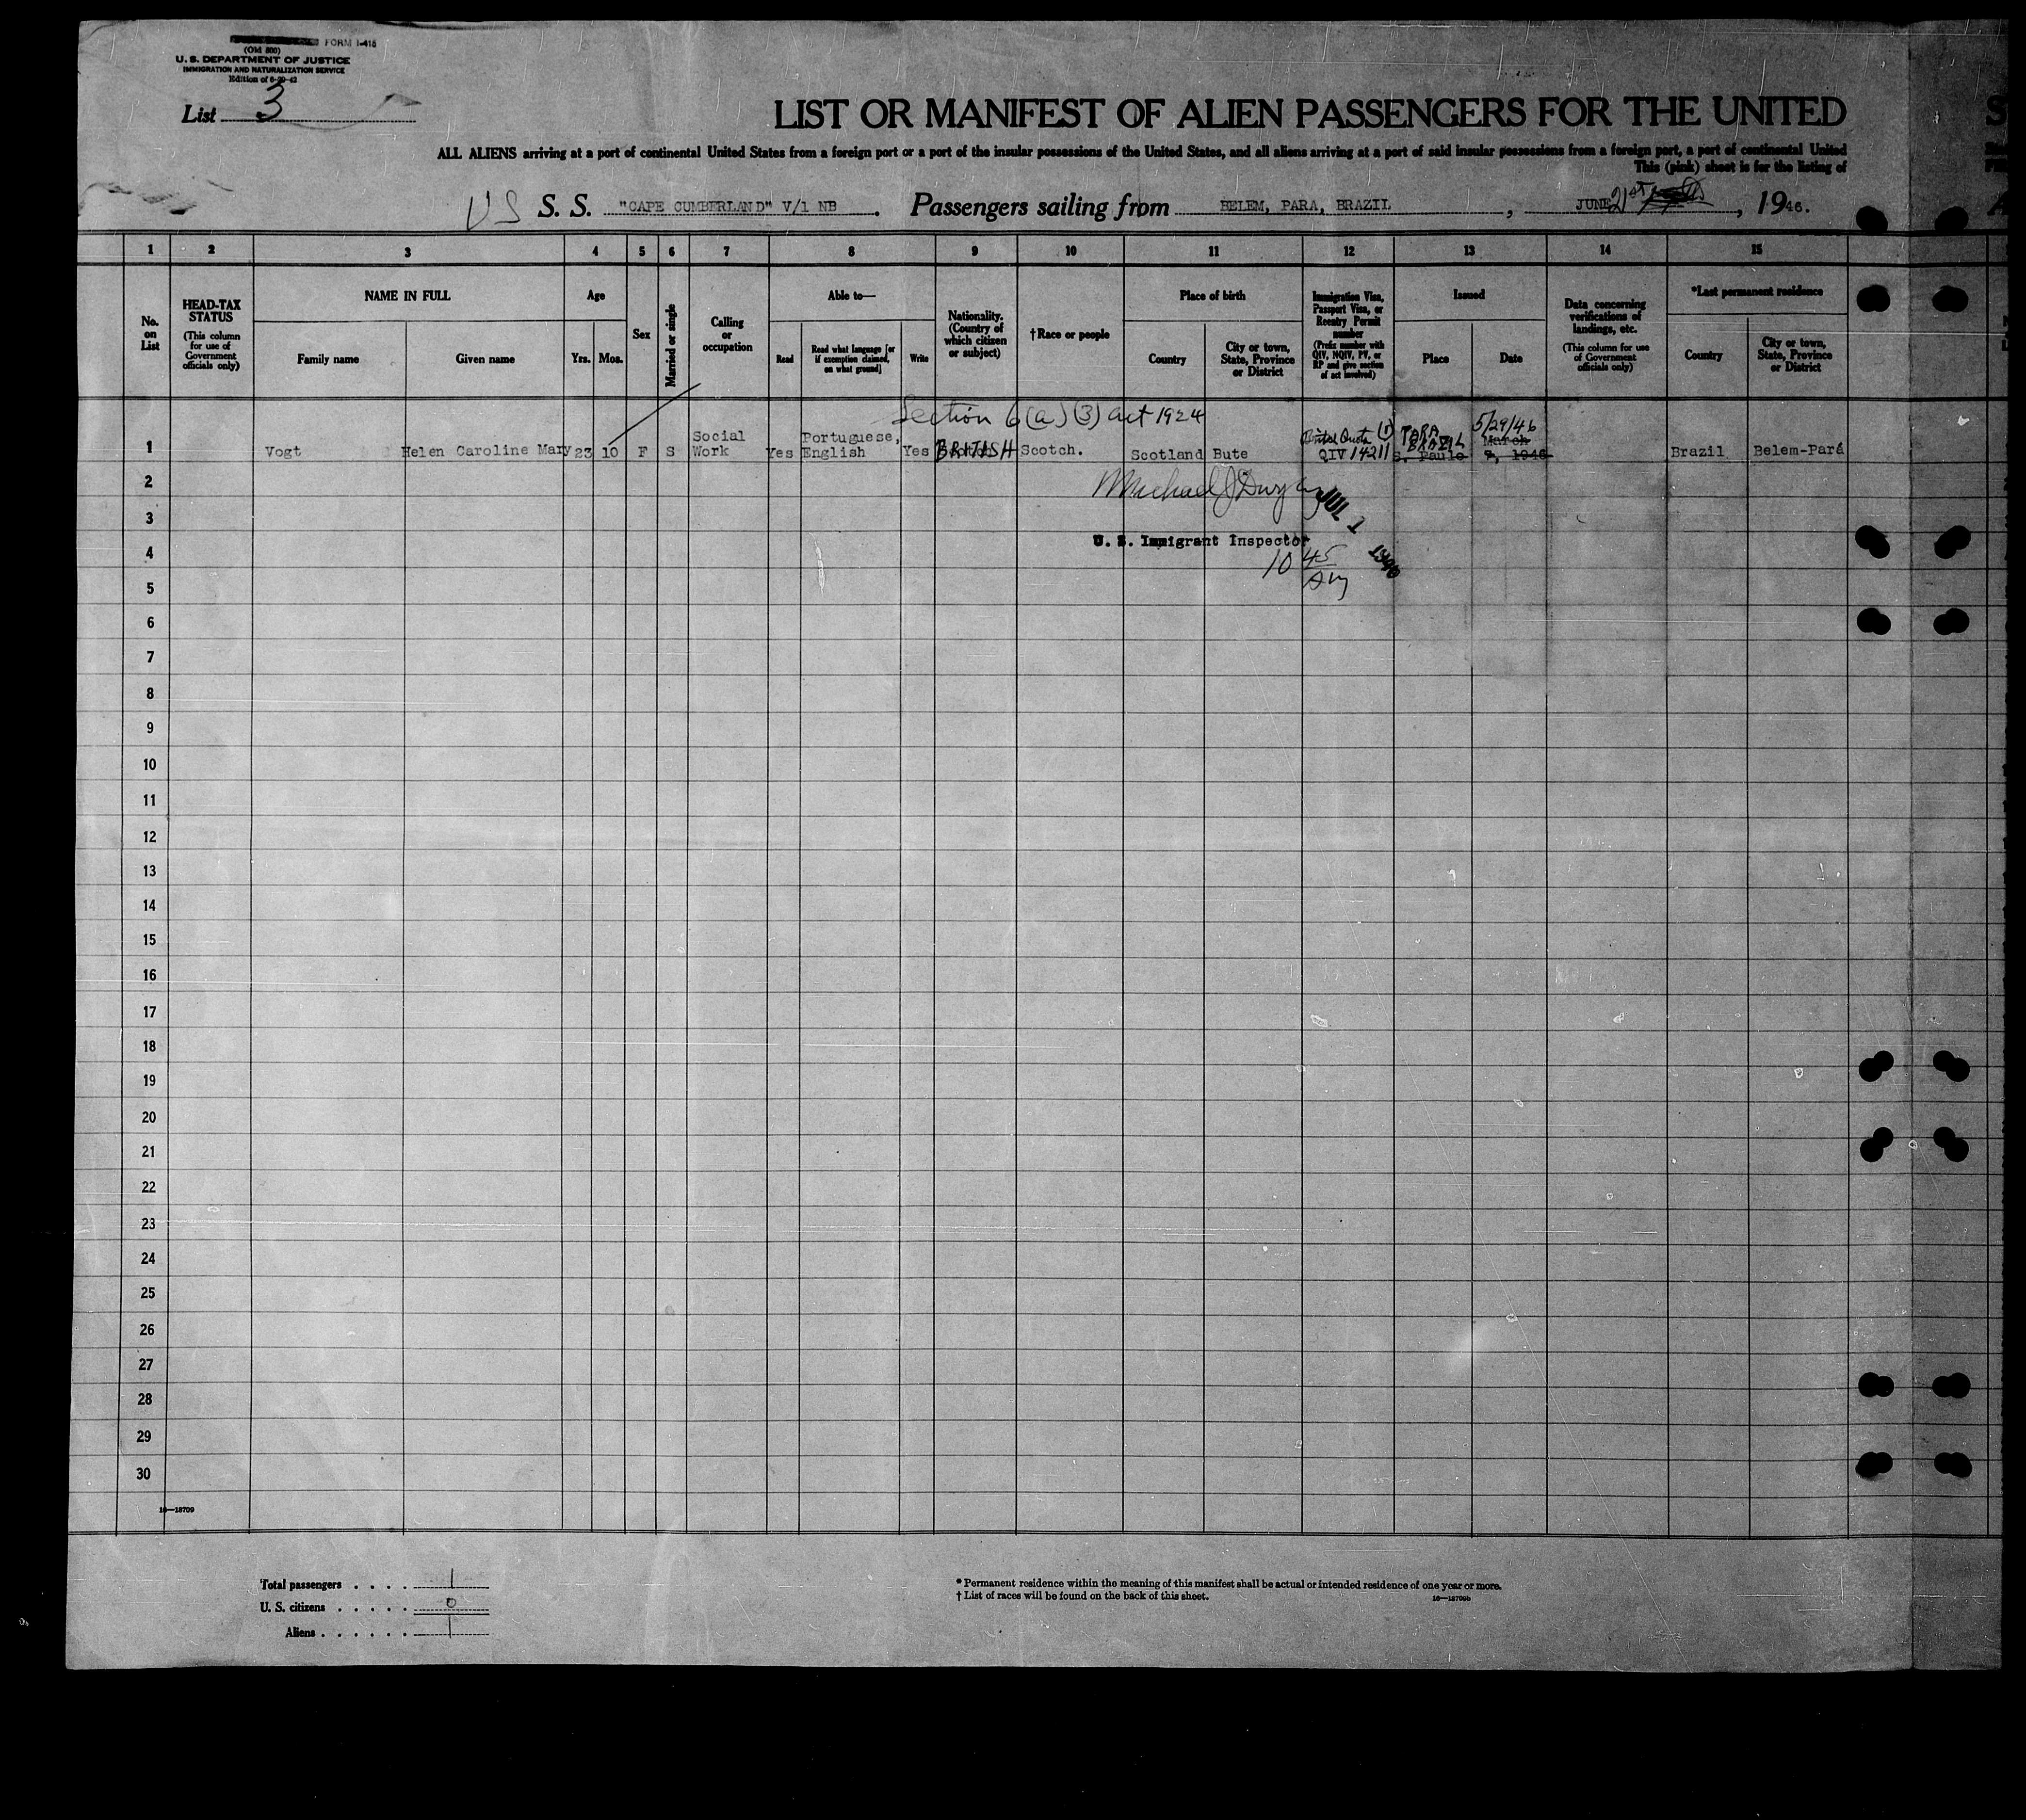 FORM I-415
(Old 500)
U. S. DEPARTMENT OF JUSTICE
IMMIGRATION AND NATURALIZATION SERVICE
Edition of 6-20-42
List 3
LIST OR MANIFEST OF ALIEN PASSENGERS FOR THE UNITED
ALL ALIENS arriving at a port of continental United States from a foreign port or a port of the insular possessions of the United States, and all aliens arriving at a port of said insular possessions from a foreign port, a port of continental United
This (pink) sheet is for the listing of
US S. S. "CAPE CUMBERLAND" V/1 NB . Passengers sailing from BELEM, PARA, BRAZIL , JUNE 21st , 1946.
1 2 3 4 5 6 7 8 9 10 11 12 13 14 15
No. on List
HEAD-TAX STATUS
(This column for use of Government officials only)
NAME IN FULL
Family name
Given name
Age
Yrs.
Mos.
Sex
Married or single
Calling or occupation
Able to—
Read
Read what language [or if exemption claimed, on what ground]
Write
Nationality. (Country of which citizen or subject)
†Race or people
Place of birth
Country
City or town, State, Province or District
Immigration Visa, Passport Visa, or Reentry Permit number
(Prefix number with QIV, NQIV, PV, or RP and give section of act involved)
Issued
Place
Date
Data concerning verifications of landings, etc.
(This column for use of Government officials only)
*Last permanent residence
Country
City or town, State, Province or District
Section 6(a)(3) act 1924
1 Vogt Helen Caroline Mary 23 10 F S Social Work Yes Portuguese, English Yes BRITISH Scotch. Scotland Bute Quota QIV 14211 PARA BRAZIL S. Paulo 5/29/46 March 7, 1946 Brazil Belem-Pará
2
Michael J Dwyer
JUL 1 1946
3
U. S. Immigrant Inspector
4
10 45
AM
5
6
7
8
9
10
11
12
13
14
15
16
17
18
19
20
21
22
23
24
25
26
27
28
29
30
16—18709
Total passengers . . . . 1
U. S. citizens . . . . . 0
Aliens . . . . . . 1
* Permanent residence within the meaning of this manifest shall be actual or intended residence of one year or more.
† List of races will be found on the back of this sheet.
16—18709b